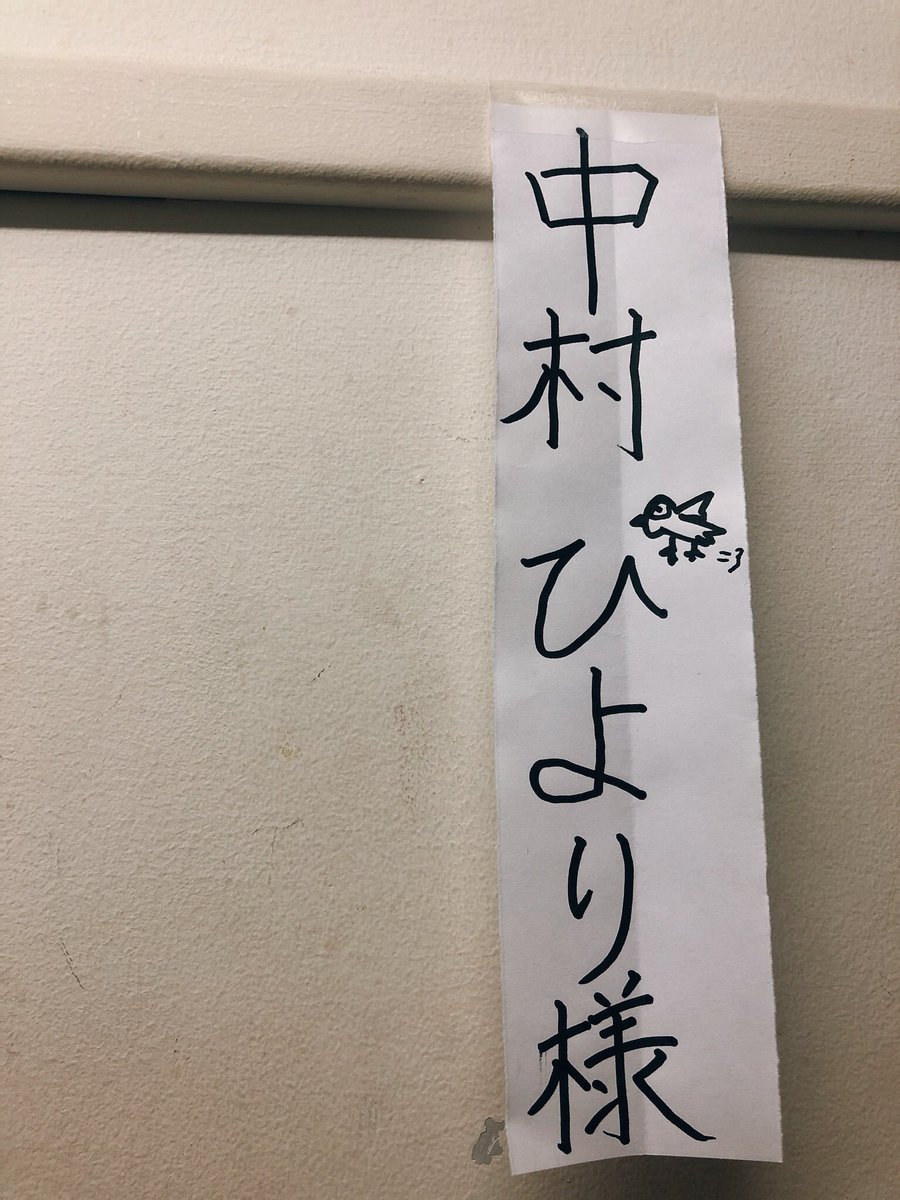 中村 ひより様